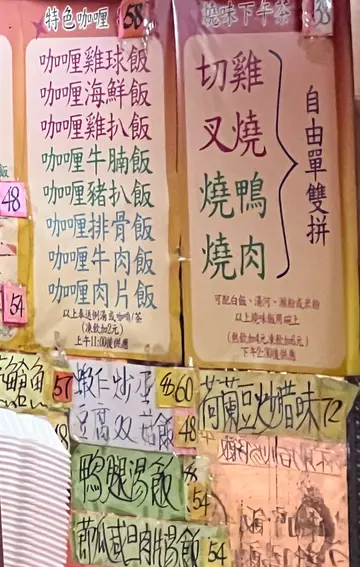 特色咖喱 58
咖喱雞球飯
咖喱海鮮飯
咖喱雞扒飯
咖喱牛腩飯
咖喱豬扒飯
咖喱排骨飯
咖喱牛肉飯
咖喱肉片飯
以上奉送例湯或咖啡/茶
(凍飲加2元)
上午11:00後供應
燒味下午茶
切雞
叉燒
燒鴨
燒肉
自由單雙拼
可配白飯、湯河、瀨粉或米粉
以上燒味飯用碗上
(熱飲加4元凍飲加6元)
下午2:30後供應
48
54
57
蝦仁炒蛋 60
豆腐双菇飯 48
鴨腿湯飯 54
節瓜咸旦肉片湯飯 54
荷蘭豆炒腊味 72